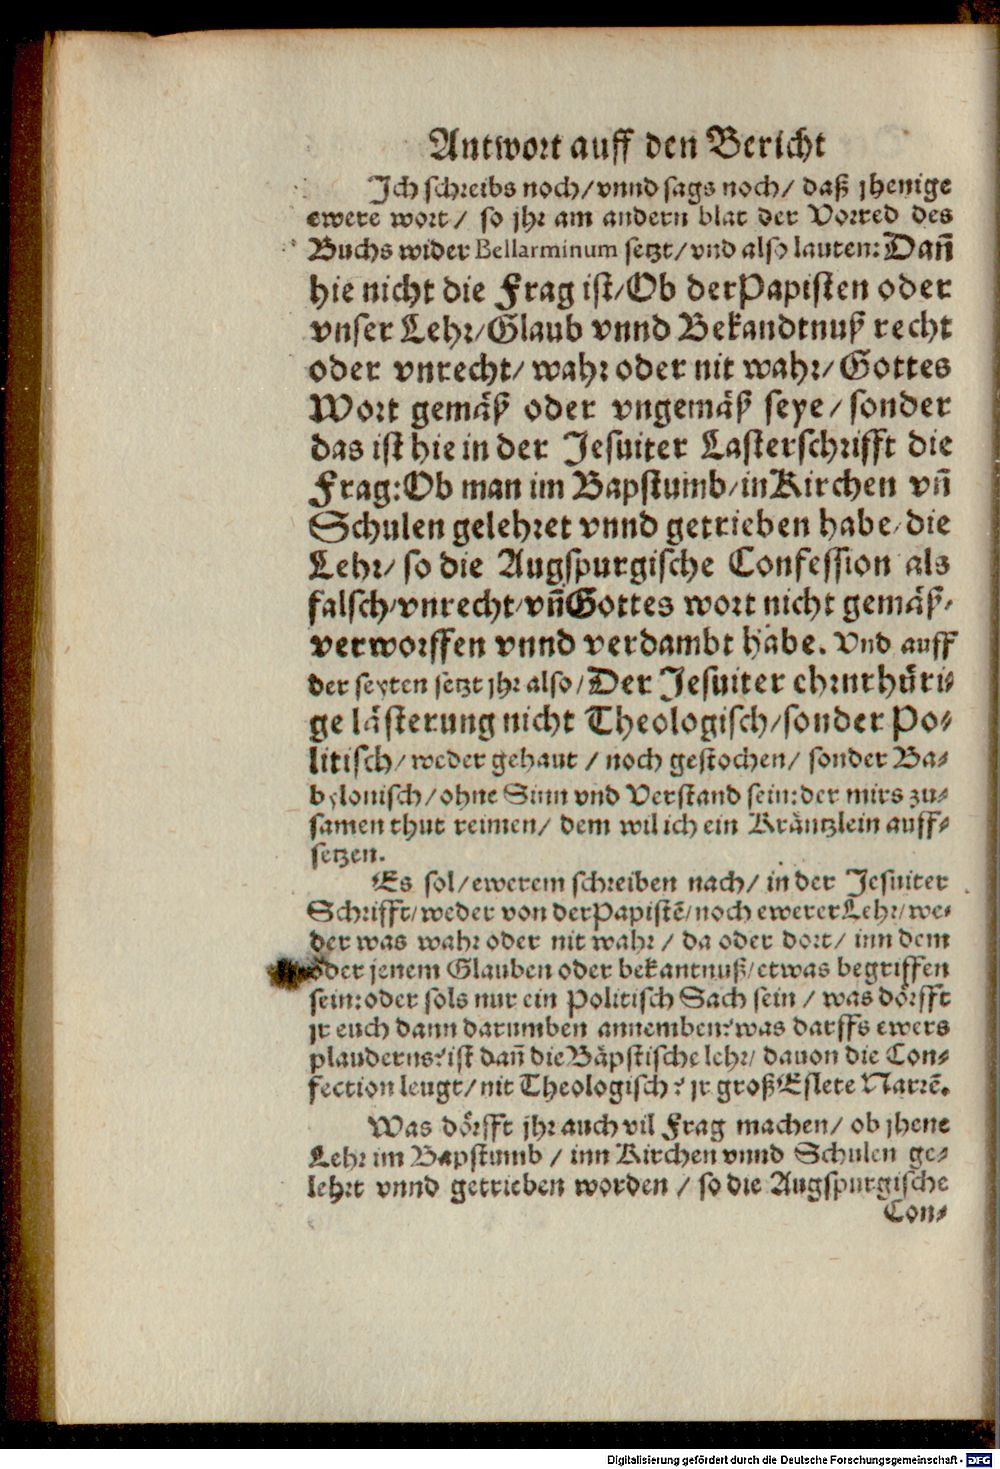 Antwort auff den Bericht
Jch schreibs noch/vnnd sags noch/ daß jhenige
ewere wort/ so jhr am andern blat der Vorred des
Buchs wider Bellarminum setzt/vnd also lauten: Dañ
hie nicht die Frag ist/Ob der Papisten oder
vnser Lehr/Glaub vnnd Bekandtnuß recht
oder vnrecht/ wahr oder nit wahr/Gottes
Wort gemäß oder vngemäß seye/sonder
das ist hie in der Jesuiter Lasterschrifft die
Frag: Ob man im Bapstumb/in Kirchen vñ
Schulen gelehret vnnd getrieben habe/die
Lehr/ so die Augspurgische Confession als
falsch/vnrecht/vñ Gottes wort nicht gemäß/
verworffen vnnd verdambt habe. Vnd auff
der seyten setzt jhr also/Der Jesuiter ehrnrhüri-
ge lästerung nicht Theologisch/sonder Po-
litisch/weder gehaut / noch gestochen/ sonder Ba-
bylonisch/ohne Sinn vnd Verstand sein: der mirs zu-
samen thut reimen/ dem wil ich ein Kräntzlein auff-
setzen.
Es sol/ewerem schreiben nach/ in der Jesuiter
Schrifft/weder von der Papistē/noch ewerer Lehr/we-
der was wahr oder nit wahr / da oder dort/ inn dem
oder jenem Glauben oder bekantnuß/etwas begriffen
sein: oder sols nur ein Politisch Sach sein / was dörfft
jr euch dann darumben annemben? was darffs ewers
plauderns? ist dañ die Bäpstische lehr/ dauon die Con-
fection leugt/nit Theologisch? jr groß Eslete Narrē.
Was dörfft jhr auch vil Frag machen/ ob jhene
Lehr im Bapstumb / inn Kirchen vnnd Schulen ge-
lehrt vnnd getrieben worden / so die Augspurgische
Con-
Digitalisierung gefördert durch die Deutsche Forschungsgemeinschaft - DFG